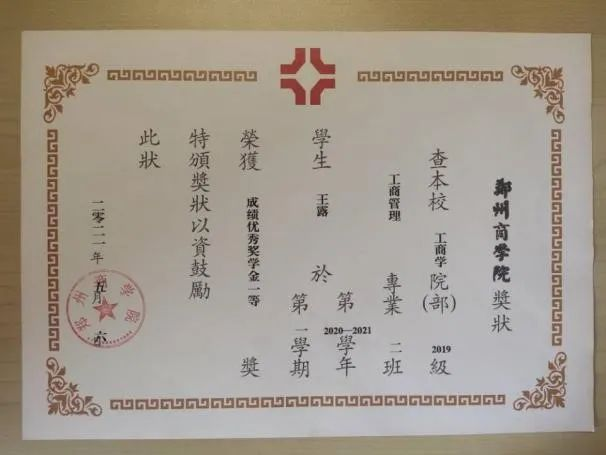 郑州商学院獎狀
查本校工商学院(部)2019級
工商管理專業二班
學生王露於
第2020—2021學年
第一學期
榮獲成绩优秀奖学金一等獎
特頒獎狀以資鼓勵
此狀
二零二一年五月六日
郑州商学院